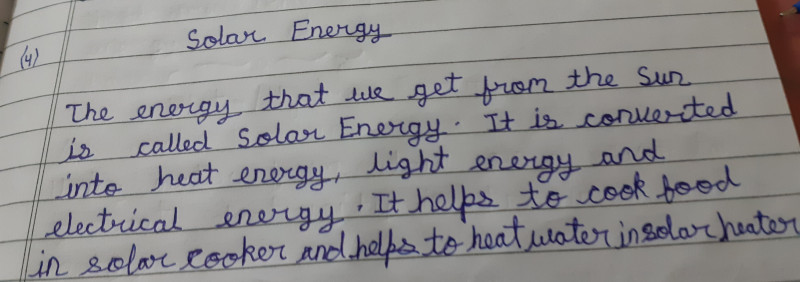 Solar Energy
(4)
The energy that we get from the Sun
is called Solar Energy. It is converted
into heat energy, light energy and
electrical energy. It helps to cook food
in solar cooker and helps to heat water in solar heater